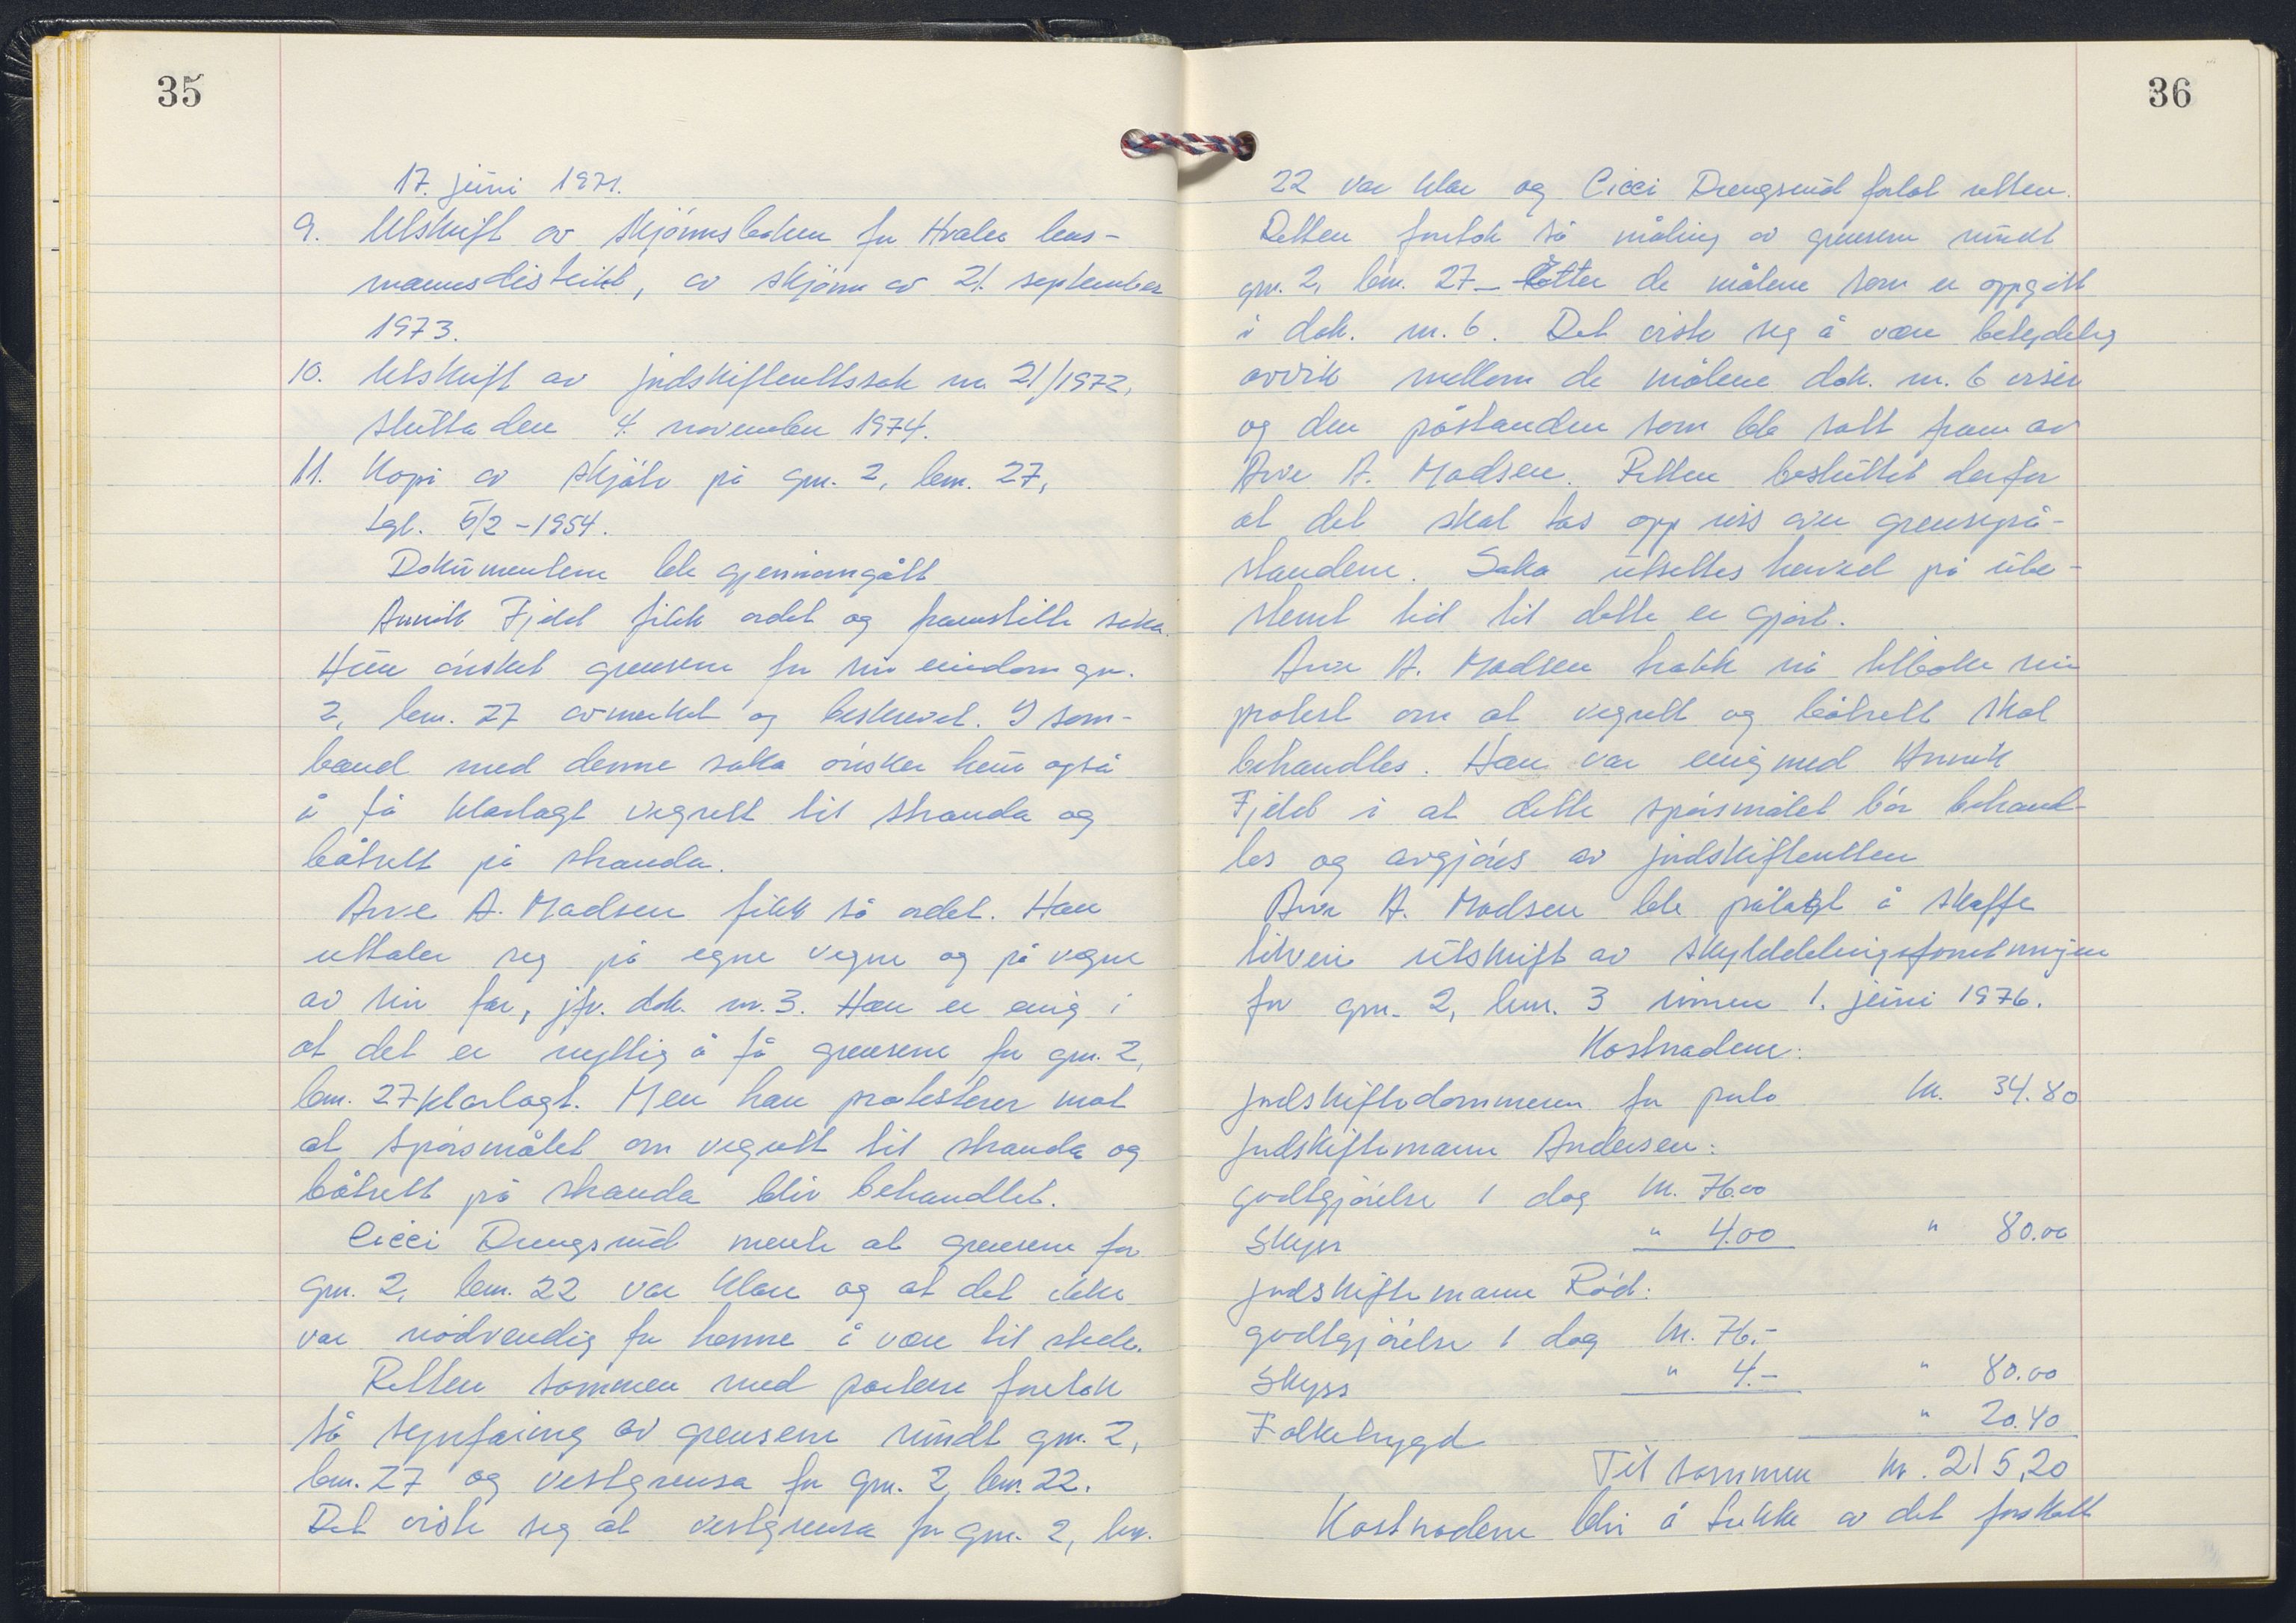 35
17. juni 1971.
9. Utskrift av skjønnsboken for Hvaler lens-
mannsdistrikt, av skjønn av 21. september
1973.
10. Utskrift av jordskifterettssak nr. 21/1972,
slutta den 4. november 1974.
11. Kopi av skjøte på gnr. 2, bnr. 27,
tgl. 5/2-1954.
Dokumentene ble gjennomgått
Annik Fjeld fikk ordet og framstilte saka.
Hun ønsket grensene for sin eiendom gnr.
2, bnr. 27 avmerket og beskrevet. I sam-
band med denne saka ønsker hun også
å få klarlagt vegrett til stranda og
båtrett på stranda.
Arve A. Madsen fikk så ordet. Han
uttaler seg på egne vegne og på vegne
av sin far, jfr. dok. nr. 3. Han er enig i
at det er nyttig å få grensene for gnr. 2,
bnr. 27 klarlagt. Men han protesterer mot
at spørsmålet om vegrett til stranda og
båtrett på stranda blir behandlet.
Cicci Drengsrud mente at grensene for
gnr. 2, bnr. 22 var klare og at det ikke
var nødvendig for henne å være til stede.
Retten sammen med partene foretok
så synfaring av grensene rundt gnr. 2,
bnr. 27 og vestgrensa for gnr. 2, bnr. 22.
Det viste seg at vestgrensa for gnr. 2, bnr.
36
22 var klar og Cicci Drengsrud forlot retten.
Retten foretok så måling av grensene rundt
gnr. 2, bnr. 27 - Etter de målene som er oppgitt
i dok. nr. 6. Det viste seg å være betydelig
avvik mellom de målene dok. nr. 6 viser
og den påstanden som ble satt fram av
Arve A. Madsen. Retten besluttet derfor
at det skal tas opp riss over grensepå-
standene. Saka utsettes herved på ube-
stemt tid til dette er gjort.
Arve A. Madsen trakk nå tilbake sin
protest om at vegrett og båtrett skal
behandles. Han var enig med Annik
Fjeld i at dette spørsmålet bør behand-
les og avgjøres av jordskifteretten
Arve A. Madsen ble pålagt å skaffe
tilveie utskrift av skylddelingsforretningen
for gnr. 2, bnr. 3 innen 1. juni 1976.
Kostnadene:
Jordskiftedommeren for porto kr. 34.80
Jordskiftemann Andersen:
godtgjørelse 1 dag kr. 76.00
Skyss " 4.00 " 80.00
Jordskiftemann Rød:
godtgjørelse 1 dag kr. 76.-
Skyss " 4.- " 80.00
Folketrygd " 20.40
Til sammen kr. 215,20
Kostnadene blir å trekke av det forskott